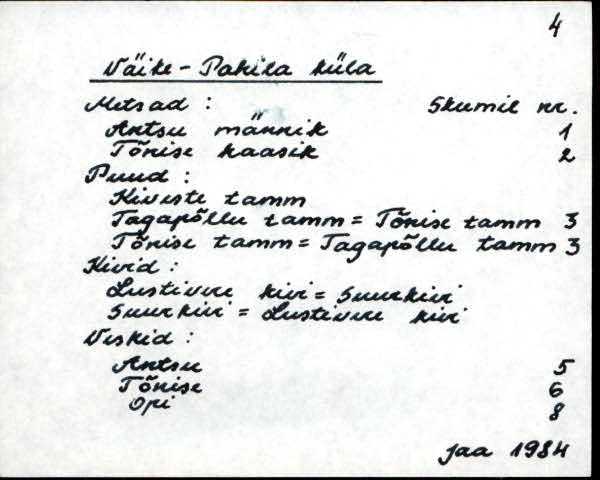 4
Väike-Pahila küla
Metsad : Skumil nr.
Antsu männik 1
Tõnise kaasik 2
Puud :
Kiveste tamm
Tagapõllu tamm = Tõnise tamm 3
Tõnise tamm = Tagapõllu tamm 3
Kivid :
Lustivere kivi = Suurkivi
Suurkivi = Lustivere kivi
Veskid :
Antsu 5
Tõnise 6
Opi 8
jaa 1984